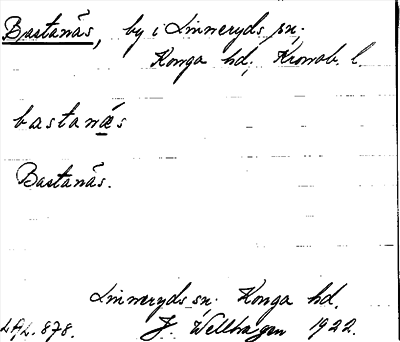 Bastanäs, by i Linneryds sn;
Konga hd; Kronob. l.
bastanæs
Bastanäs.
Linneryds sn. Konga hd.
LAL. 878. J. Wellhagen 1922.